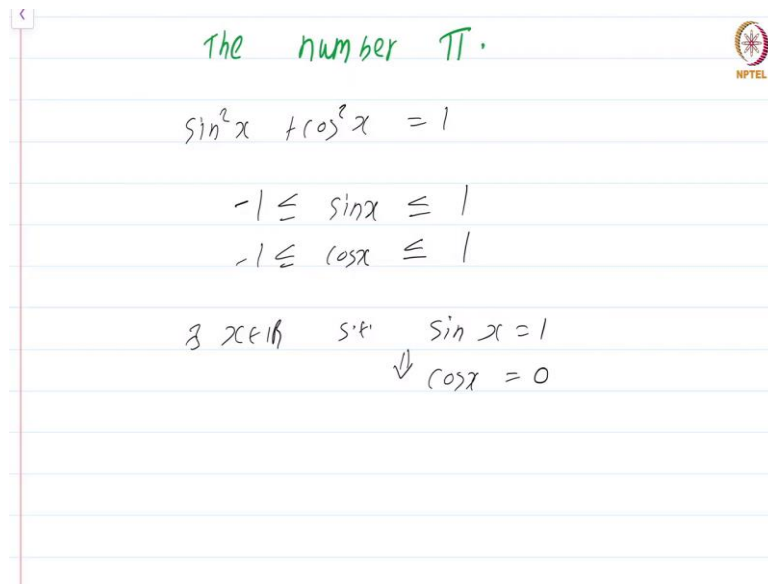 The number π.
NPTEL
sin²x + cos²x = 1
-1 ≤ sinx ≤ 1
-1 ≤ cosx ≤ 1
∃ x∈ℝ s.t. sin x = 1
⇓ cosx = 0